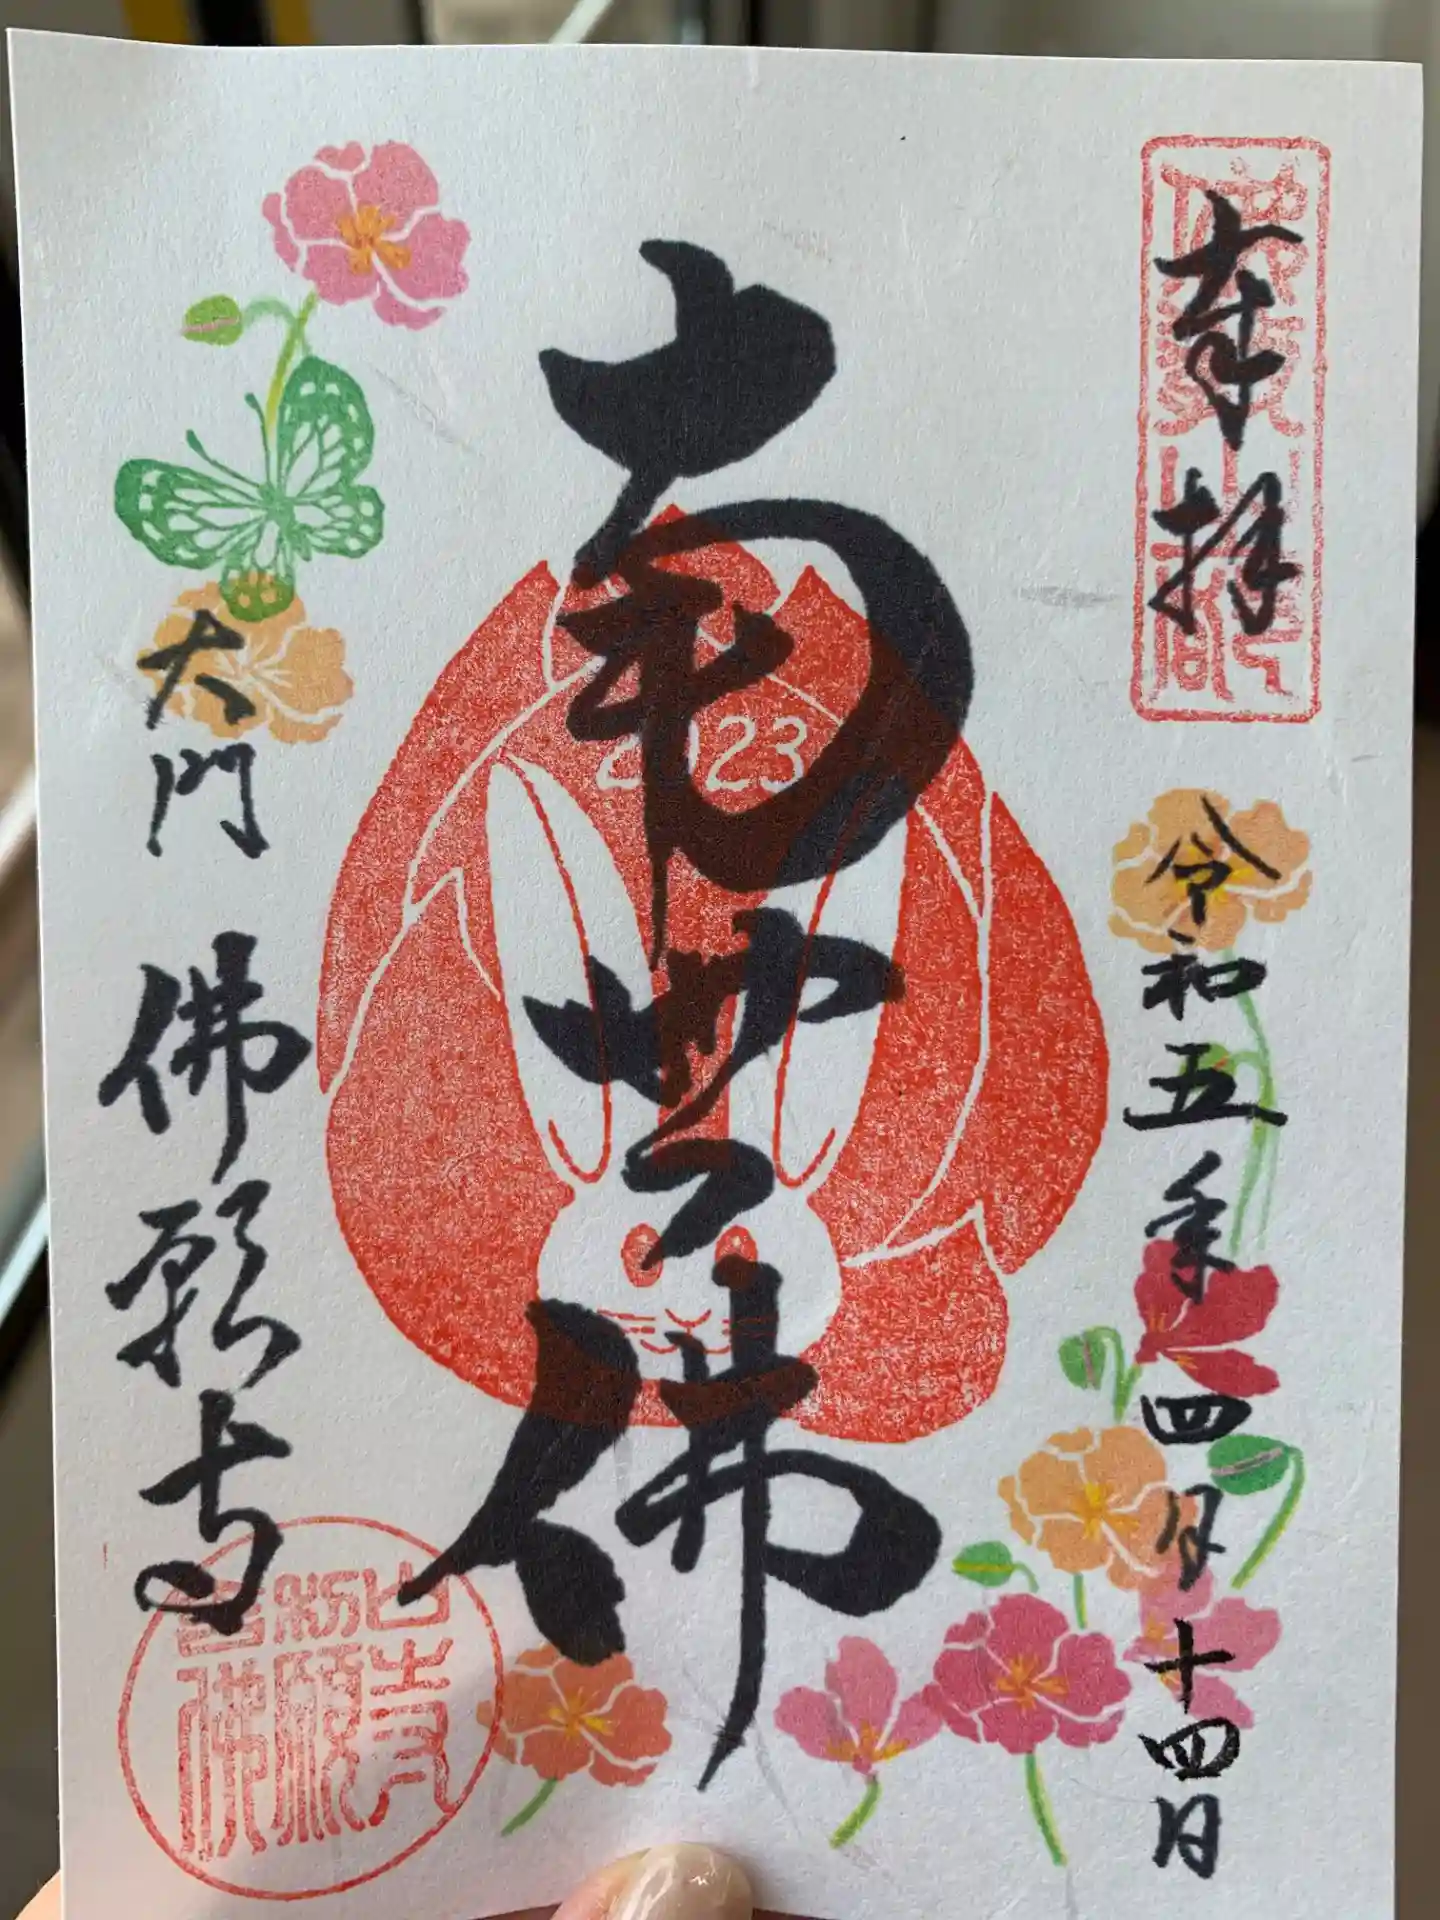 奉拝
令和五年四月十四日
南無佛
2023
大門 佛願寺
佛願寺